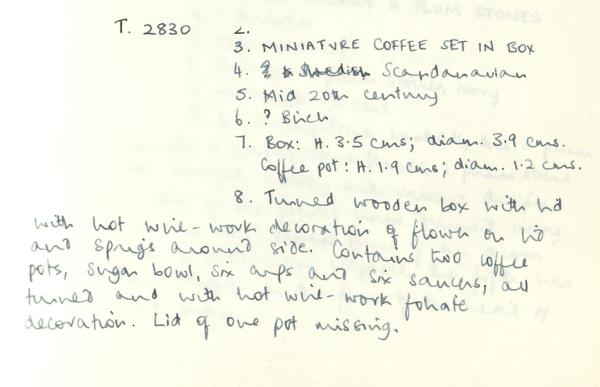 T. 2830 2.
3. MINIATURE COFFEE SET IN BOX
4. ? Swedish Scandanavian
5. Mid 20th century
6. ? Birch
7. Box: H. 3.5 cms; diam. 3.9 cms.
Coffee pot: H. 1.9 cms; diam. 1.2 cms.
8. Turned wooden box with lid
with hot wire-work decoration of flowers on lid
and sprigs around side. Contains two coffee
pots, sugar bowl, six cups and six saucers, all
turned and with hot wire-work foliate
decoration. Lid of one pot missing.